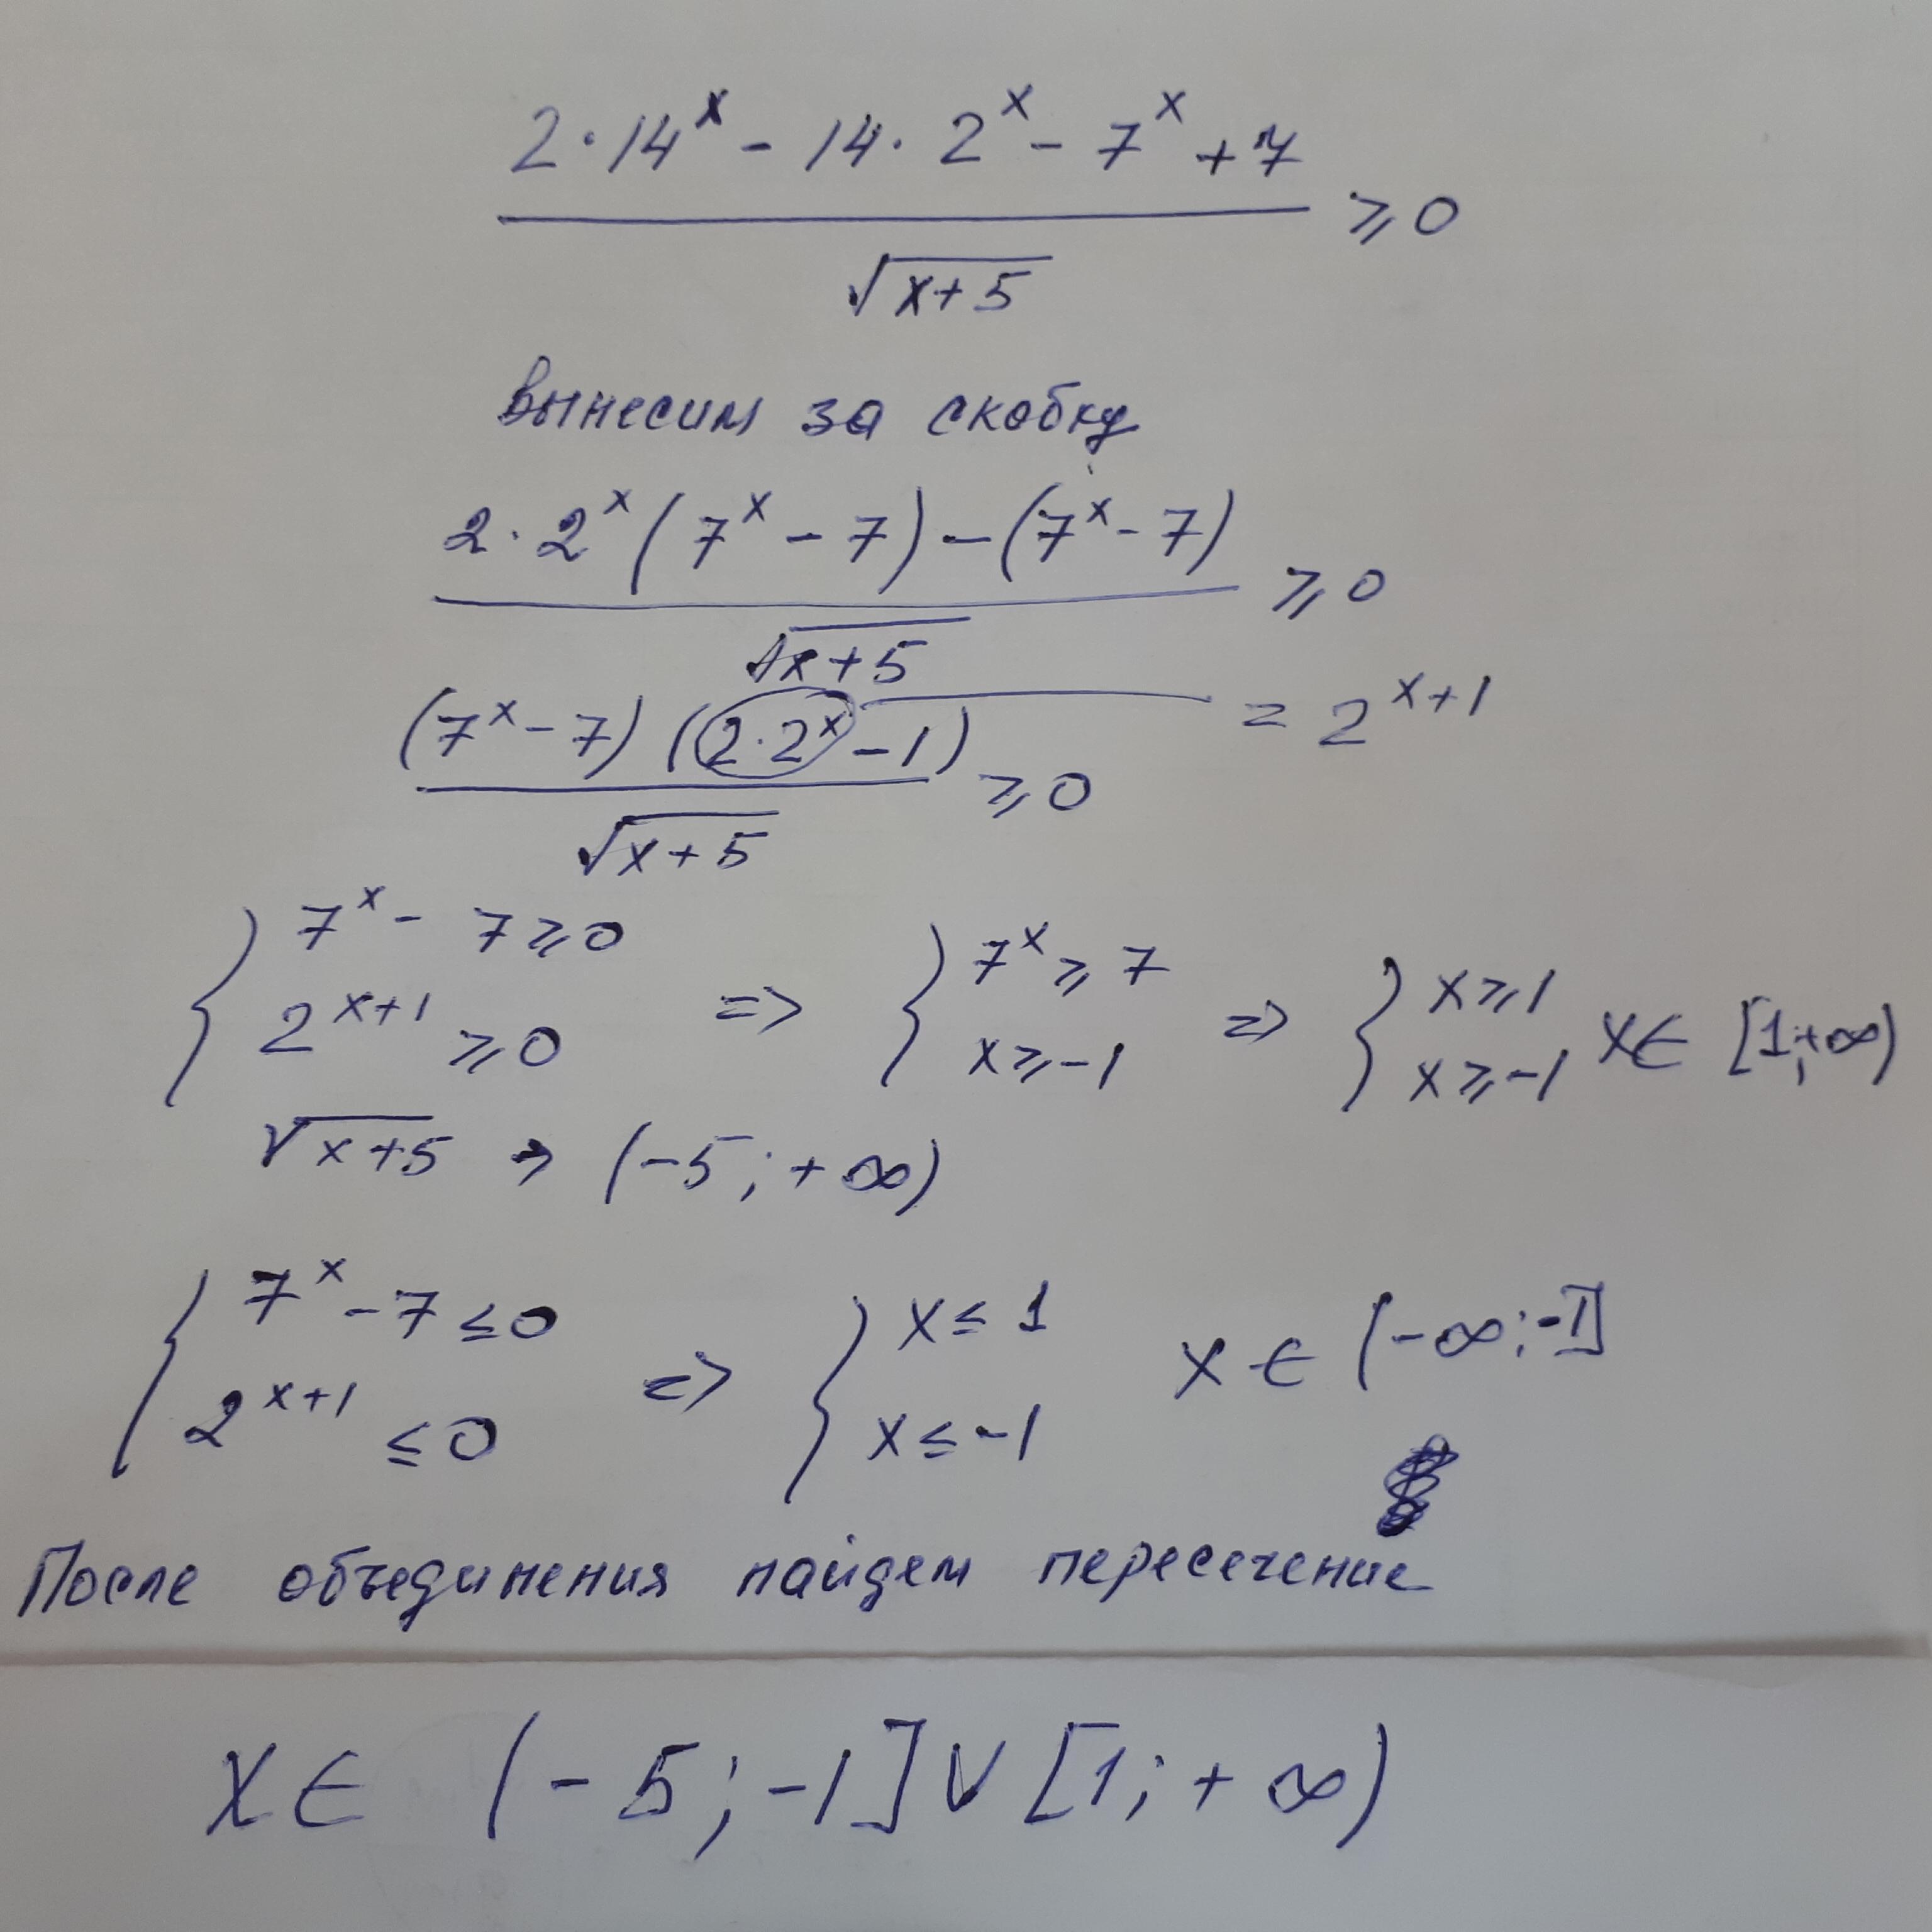 2·14^x - 14·2^x - 7^x + 7
√x+5
⩾ 0
вынесим за скобку
2·2^x (7^x - 7) - (7^x - 7)
√x+5
⩾ 0
(7^x - 7) (2·2^x - 1)
√x+5
⩾ 0
= 2^x+1
{ 7^x - 7 ⩾ 0 => { 7^x ⩾ 7 => { x ⩾ 1
2^x+1 ⩾ 0 x ⩾ -1 x ⩾ -1 x ∈ [1; +∞)
√x+5 → (-5; +∞)
{ 7^x - 7 ≤ 0 => { x ≤ 1 x ∈ (-∞; -1]
2^x+1 ≤ 0 x ≤ -1
После объединения найдем пересечение
X ∈ (-5; -1] ∨ [1; +∞)